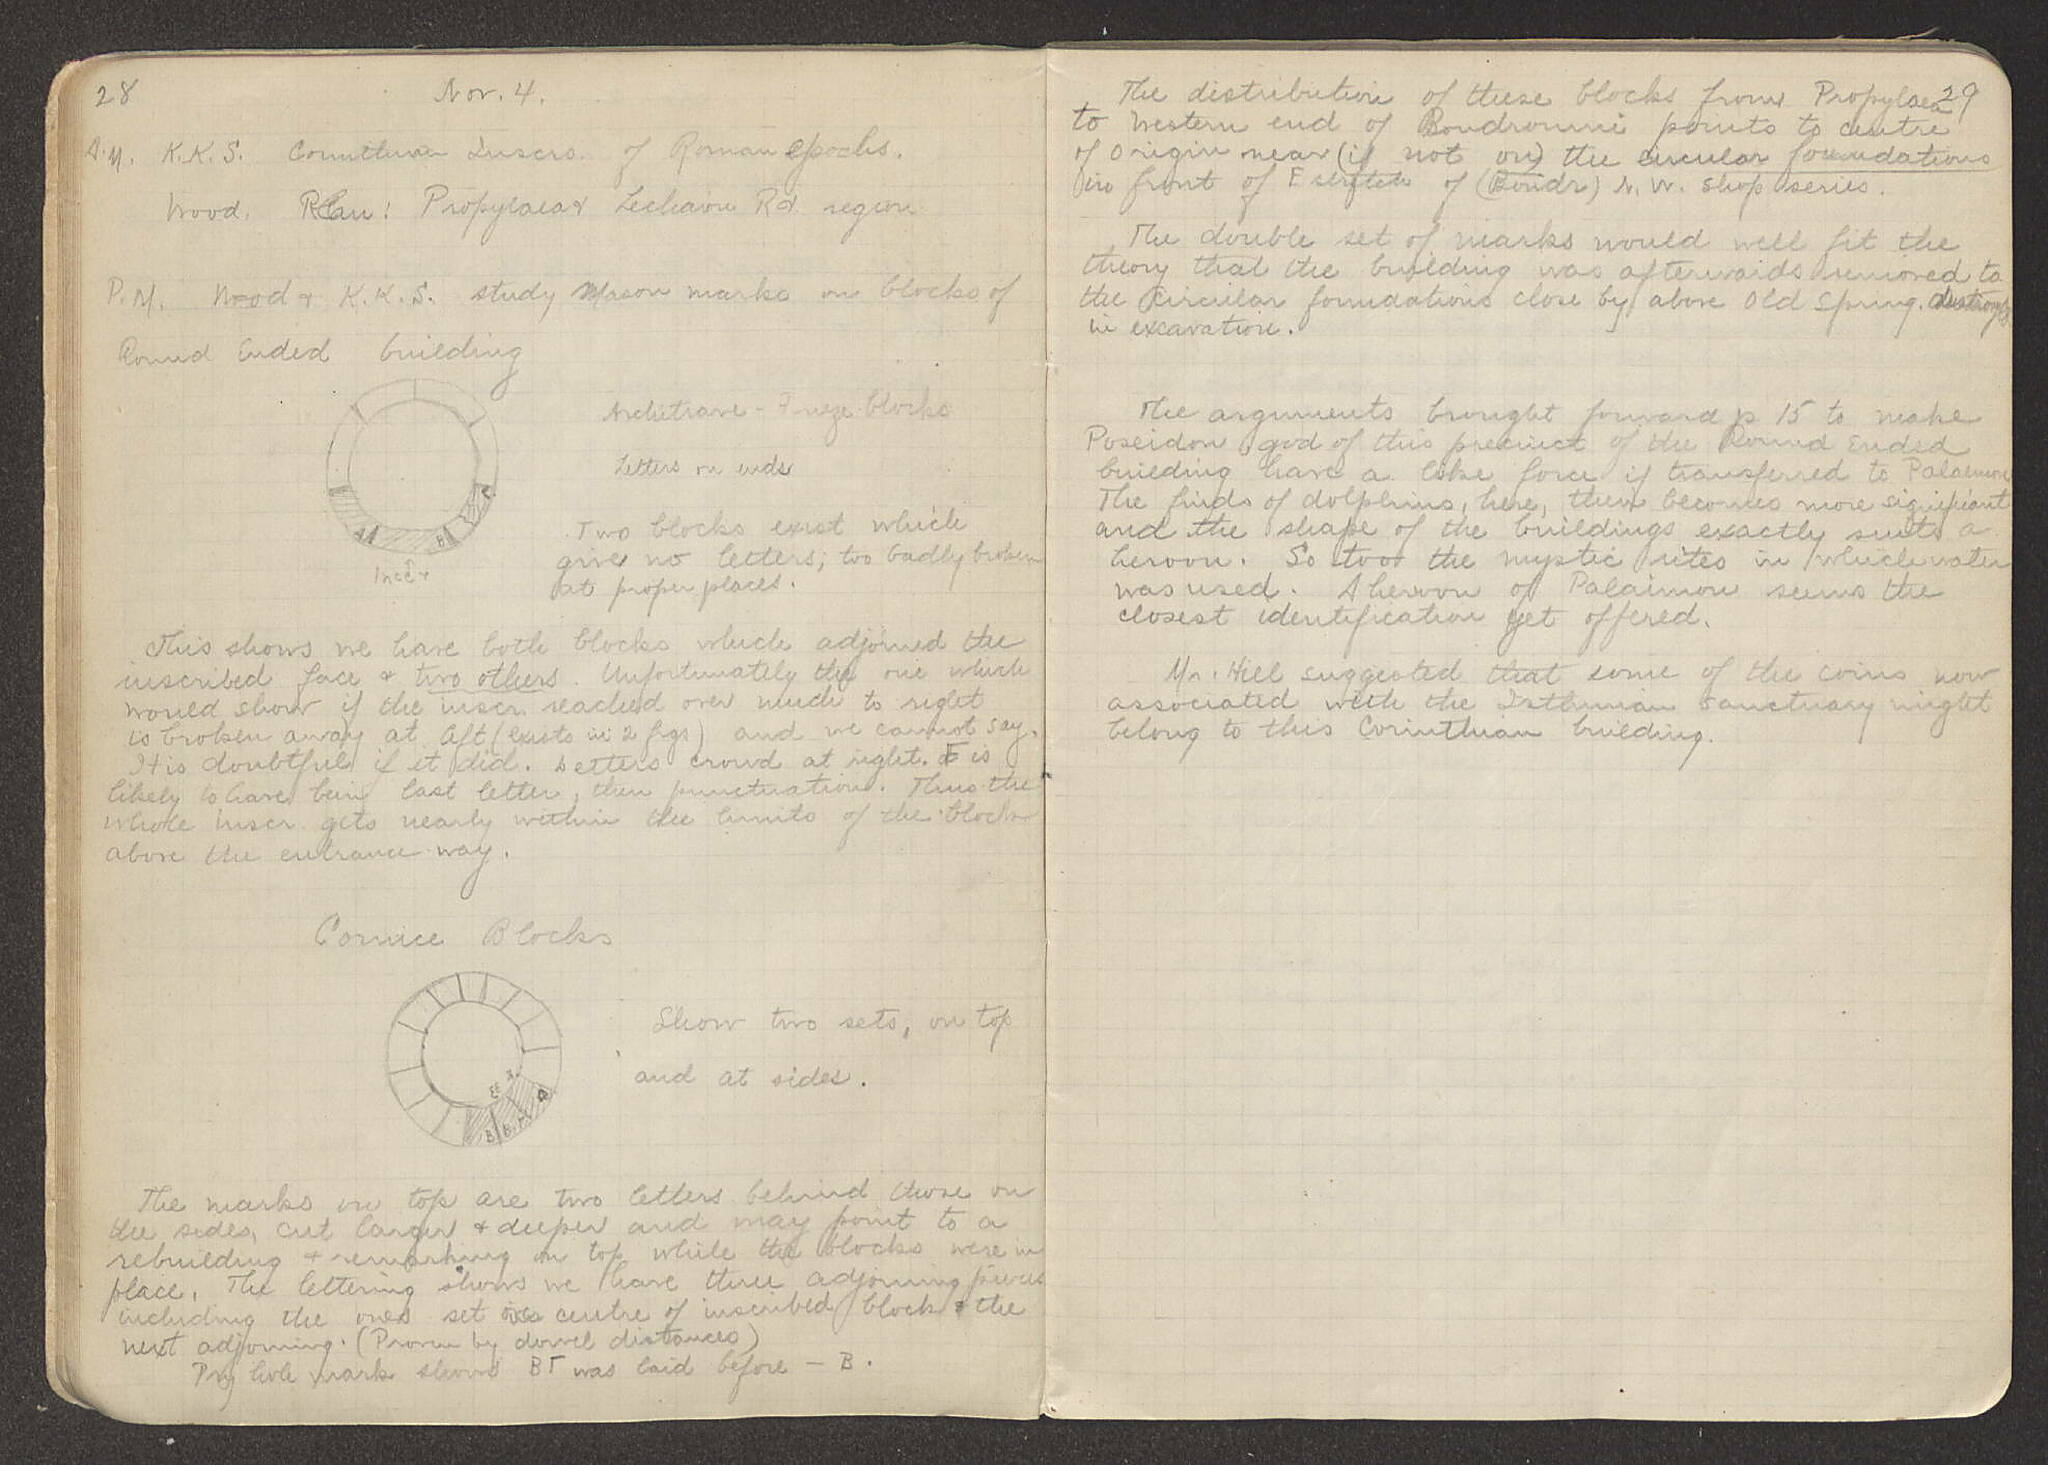 28
Nov. 4.
A.M. K.K.S. Corinthian Inscrs. of Roman epochs.
Wood. Propylaea & Lechaion Rd. region
P.M. Wood & K.K.S. study Mason marks on blocks of
Round Ended building
Architrave - Frieze blocks
Letters on ends
Two blocks exist which
give no letters; too badly broken
at proper places.
This shows we have both blocks which adjoined the
inscribed face & two others. Unfortunately the one which
would show if the inscr. reached over much to right
is broken away at left (exists in 2 frgs) and we cannot say.
It is doubtful if it did. Letters crowd at right. E is
likely to have been last letter, then punctuation. Thus the
whole inscr. gets nearly within the limits of the block
above the entrance way.
Cornice Blocks
Show two sets, on top
and at sides.
The marks on top are two letters behind those on
the sides, cut larger & deeper and may point to a
rebuilding & remarking on top while the blocks were in
place. The lettering shows we have three adjoining pieces
including the ones set over centre of inscribed block & the
next adjoining. (Proven by dowel distances)
Pry hole mark shows BΓ was laid before — B.
29
The distribution of these blocks from Propylaea
to Western end of Boudroumi points to centre
of origin near (if not on) the circular foundations
in front of E stretch of (Boudr) N.W. Shop series.
The double set of marks would well fit the
theory that the building was afterwards removed to
the circular foundations close by above Old Spring. destroyed
in excavation.
The arguments brought forward p 15 to make
Poseidon god of this precinct of the Round Ended
building have a like force if transferred to Palaimon
The finds of dolphins, here, then becomes more significant
and the shape of the buildings exactly suits a
heroon. So too the mystic rites in which water
was used. A heroon of Palaimon seems the
closest identification yet offered.
Mr. Hill suggested that some of the coins now
associated with the Isthmian sanctuary might
belong to this Corinthian building.